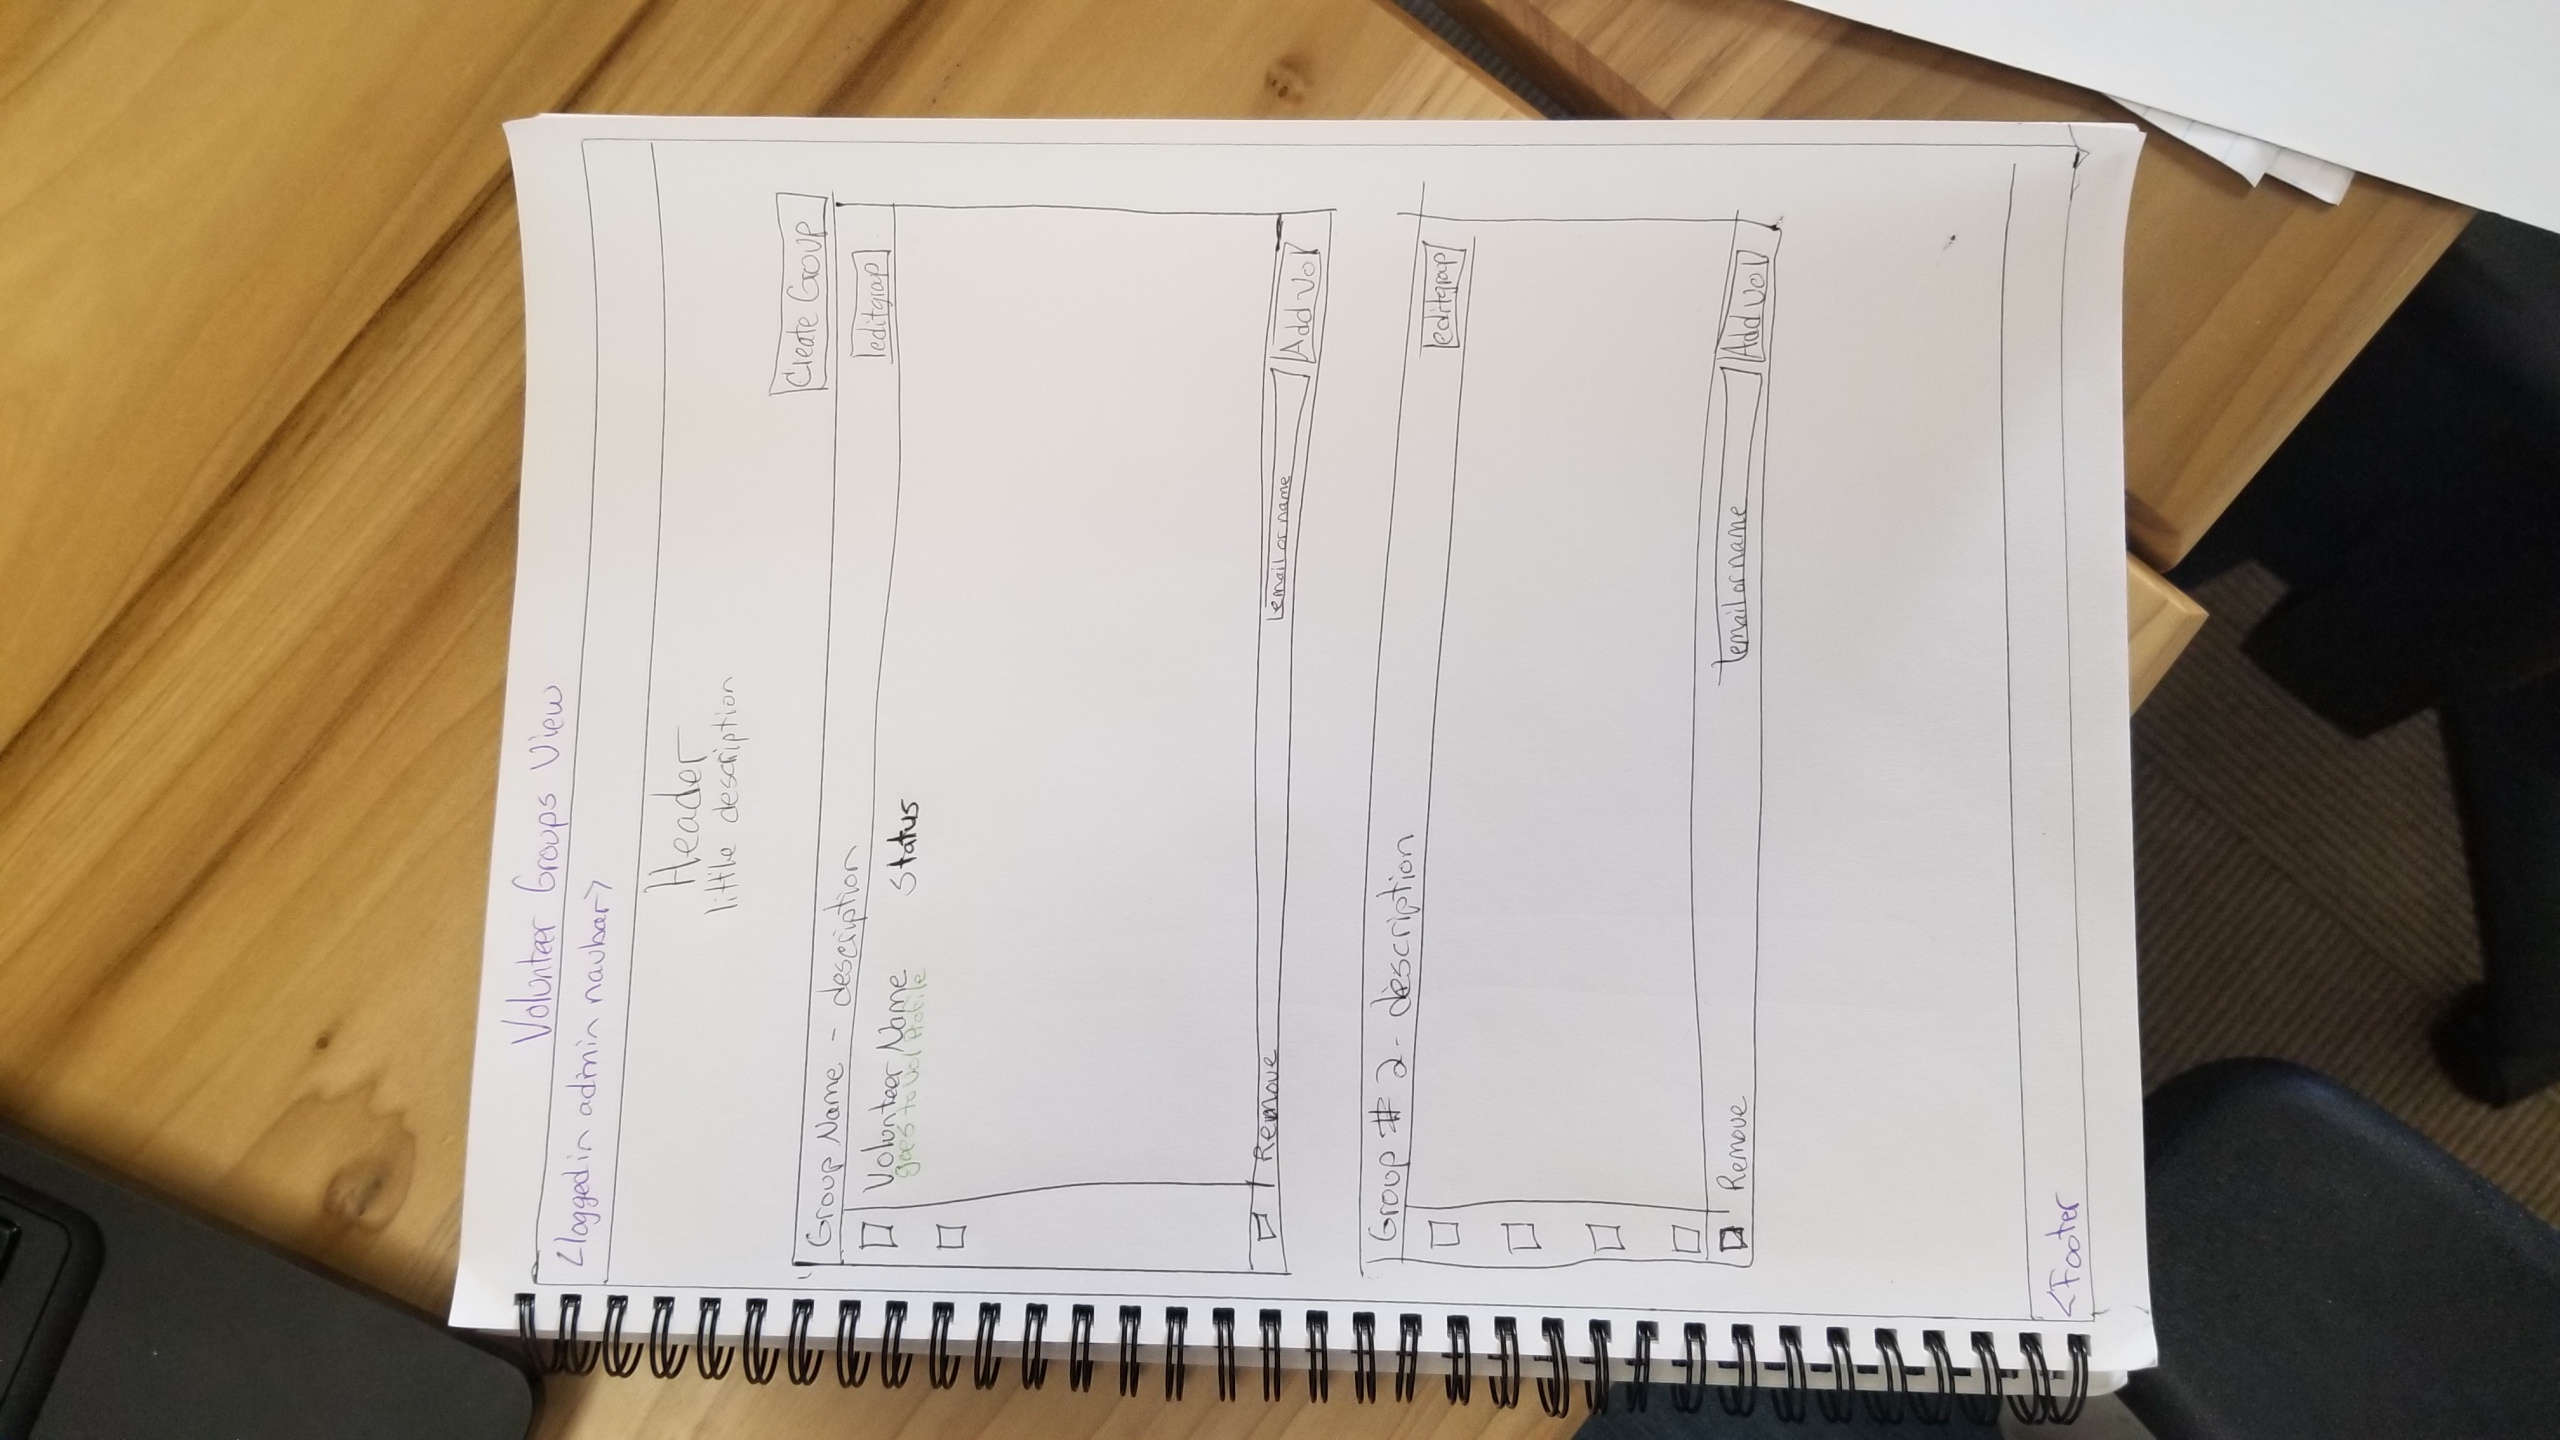 Volunteer Groups View
<logged in admin navbar>
Header
little description
Create Group
Group Name - description
editgroup
Volunteer Name Status
goes to vol Profile
Remove email or name Add Vol
Group # 2 - description
editgroup
Remove email or name Add Vol
<Footer